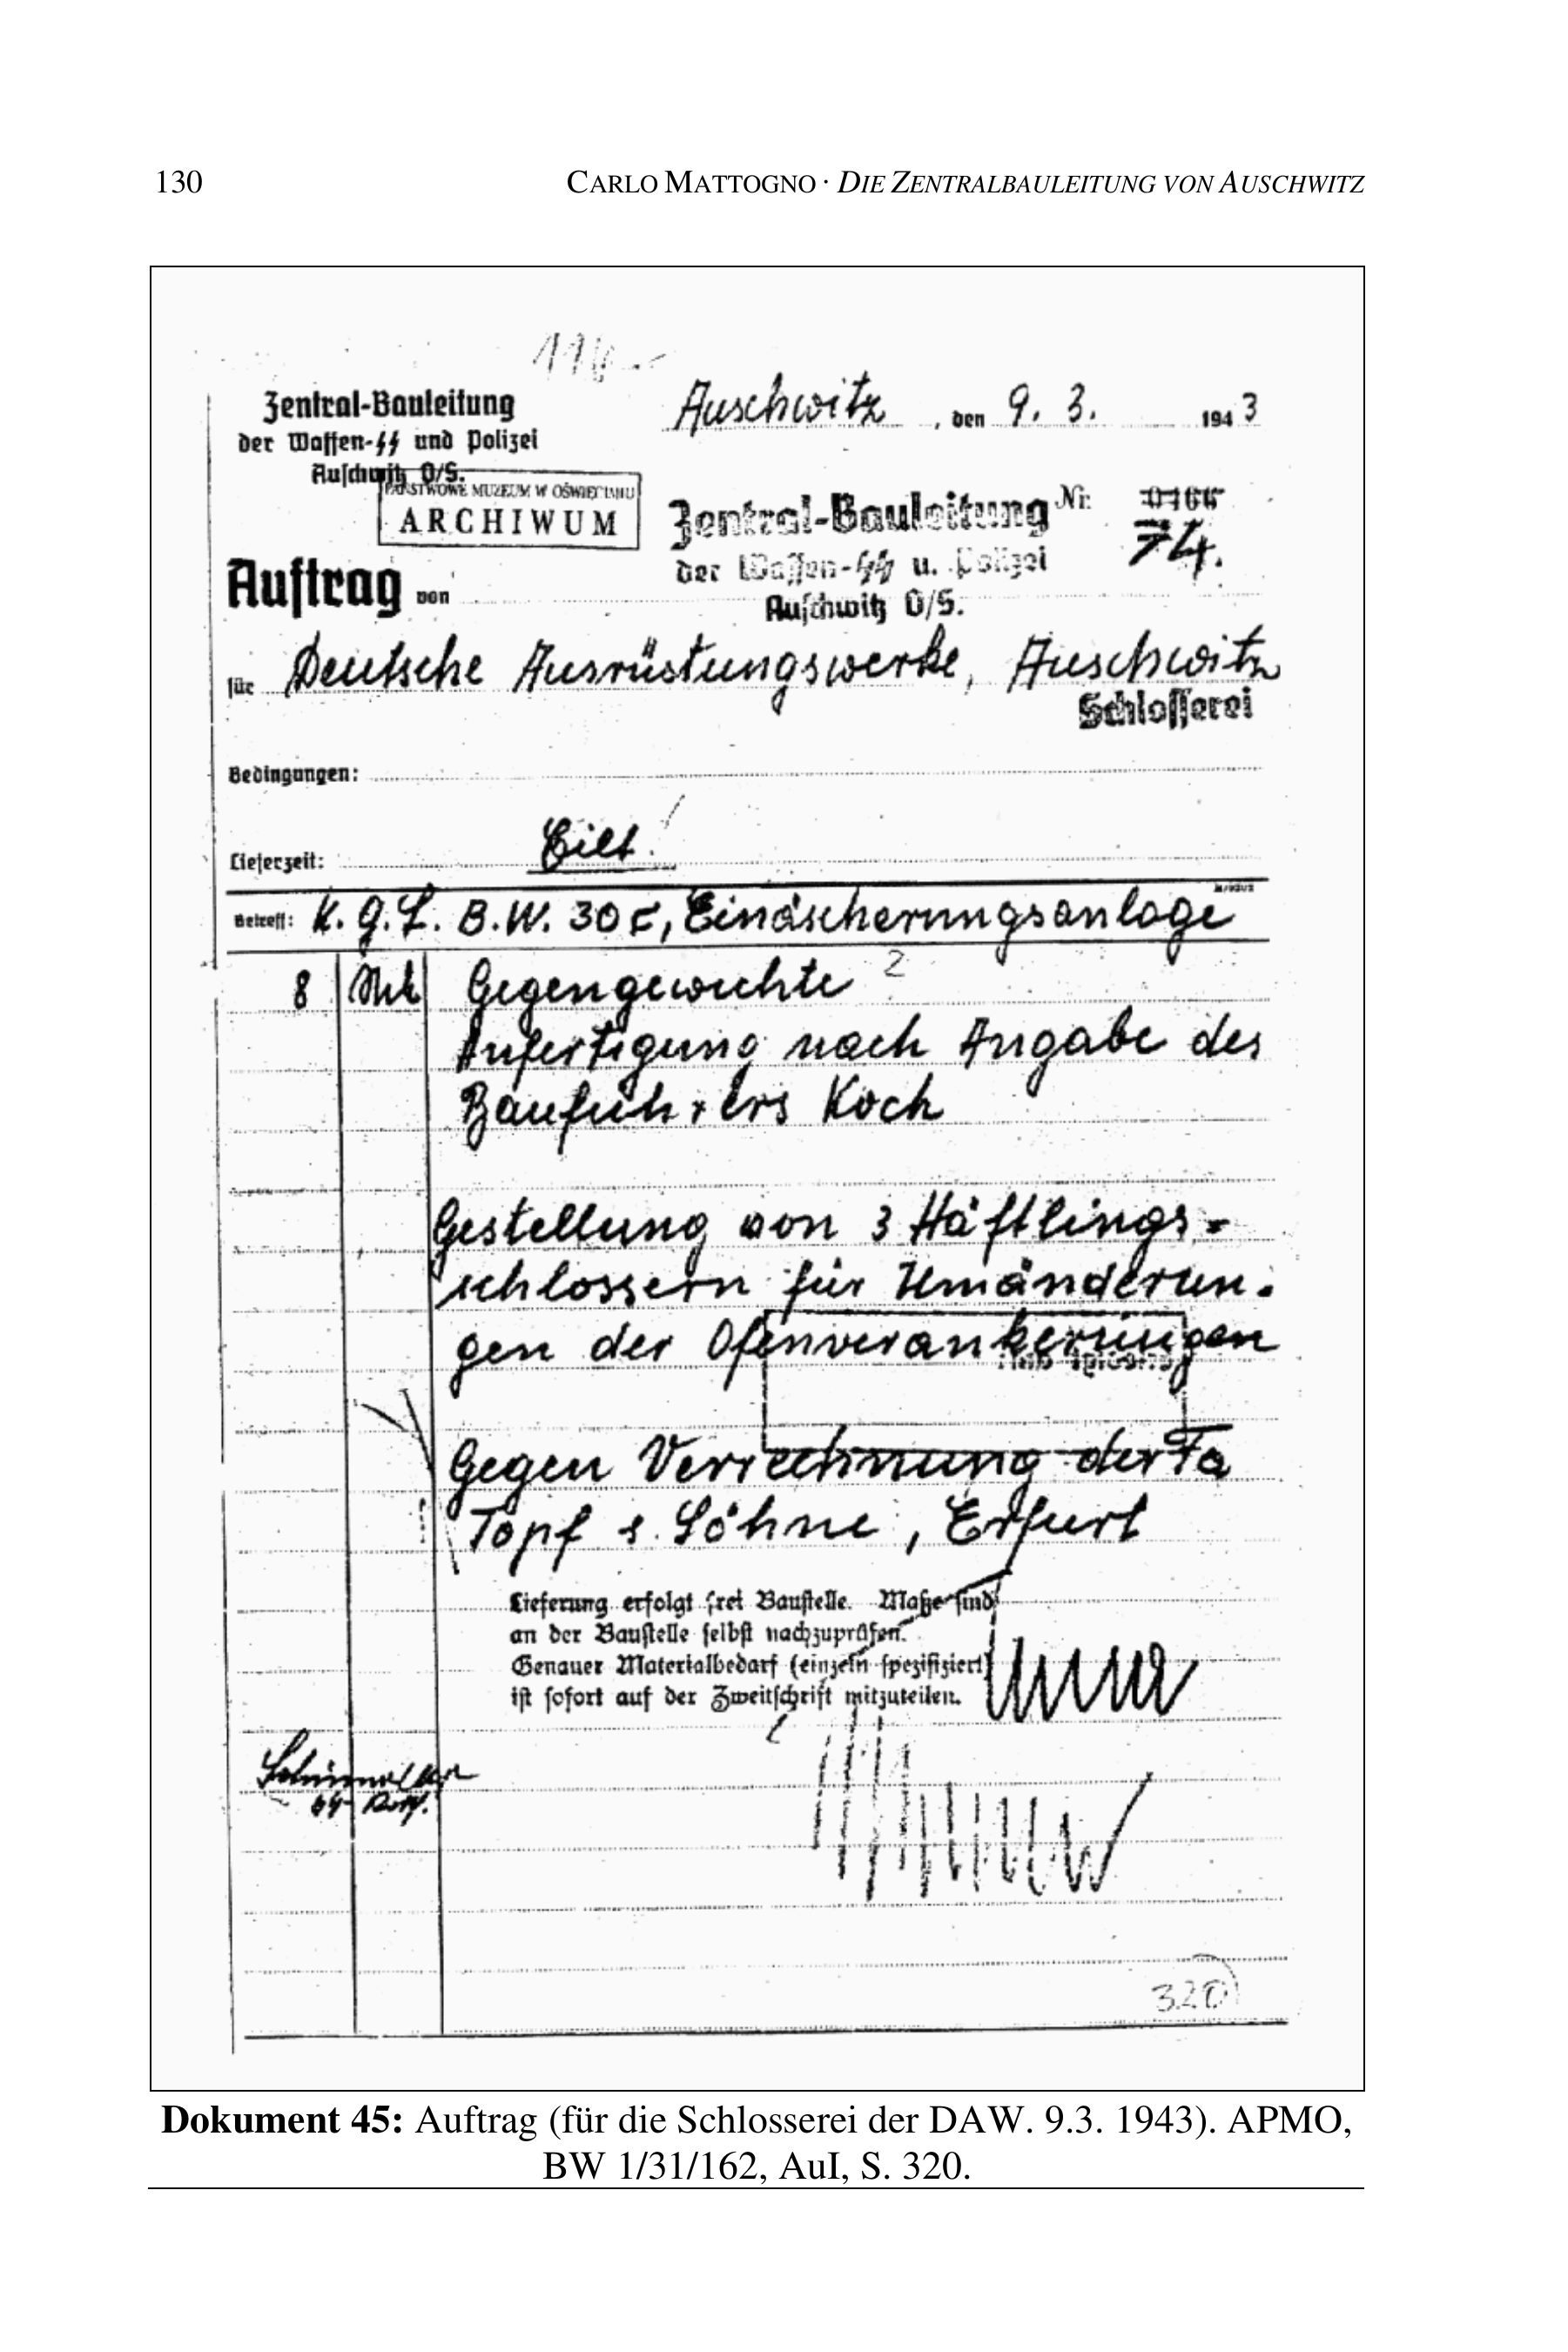 130
CARLO MATTOGNO · DIE ZENTRALBAULEITUNG VON AUSCHWITZ
Zentral-Bauleitung
der Waffen-SS und Polizei
Auschwitz O/S.
Auschwitz, den 9. 3. 1943
PAŃSTWOWE MUZEUM W OŚWIĘCIMIU
ARCHIWUM
Zentral-Bauleitung
der Waffen-SS u. Polizei
Auschwitz O/S.
Nr.
74.
Auftrag von
für Deutsche Ausrüstungswerke, Auschwitz
Schlosserei
Bedingungen:
Lieferzeit: Eilt!
Betreff: K.G.L. B.W. 30 c, Einäscherungsanlage
8 Stck Gegengewichte
2
Anfertigung nach Angabe des
Bauführers Koch
Gestellung von 3 Häftlings-
schlossern für Umänderun-
gen der Ofenverankerungen
Gegen Verrechnung der Fa
Topf & Söhne, Erfurt
Lieferung erfolgt frei Baustelle. Maße sind
an der Baustelle selbst nachzuprüfen.
Genauer Materialbedarf (einzeln spezifiziert)
ist sofort auf der Zweitschrift mitzuteilen.
320
Dokument 45: Auftrag (für die Schlosserei der DAW. 9.3. 1943). APMO,
BW 1/31/162, AuI, S. 320.